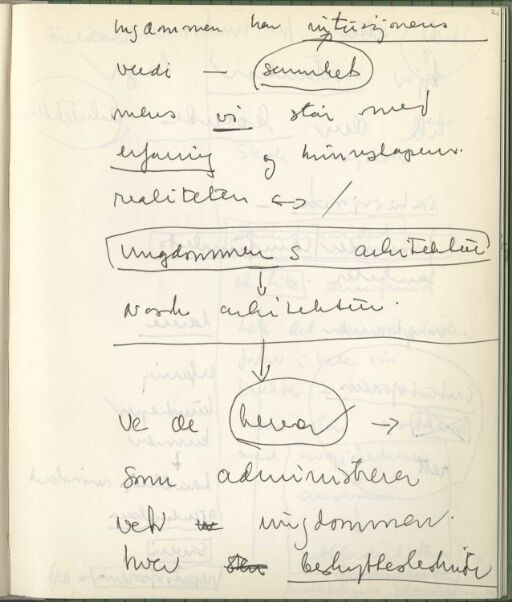 Ungdommen har intuisjonens
verdi — sannhet
mens vi står med
erfaring og kunnskapens
realiteten ↔ /
ungdommens arkitektur
↓
Norsk arkitektur.
↓
ve de herrer →
som administrerer
vekk ungdommen.
hver